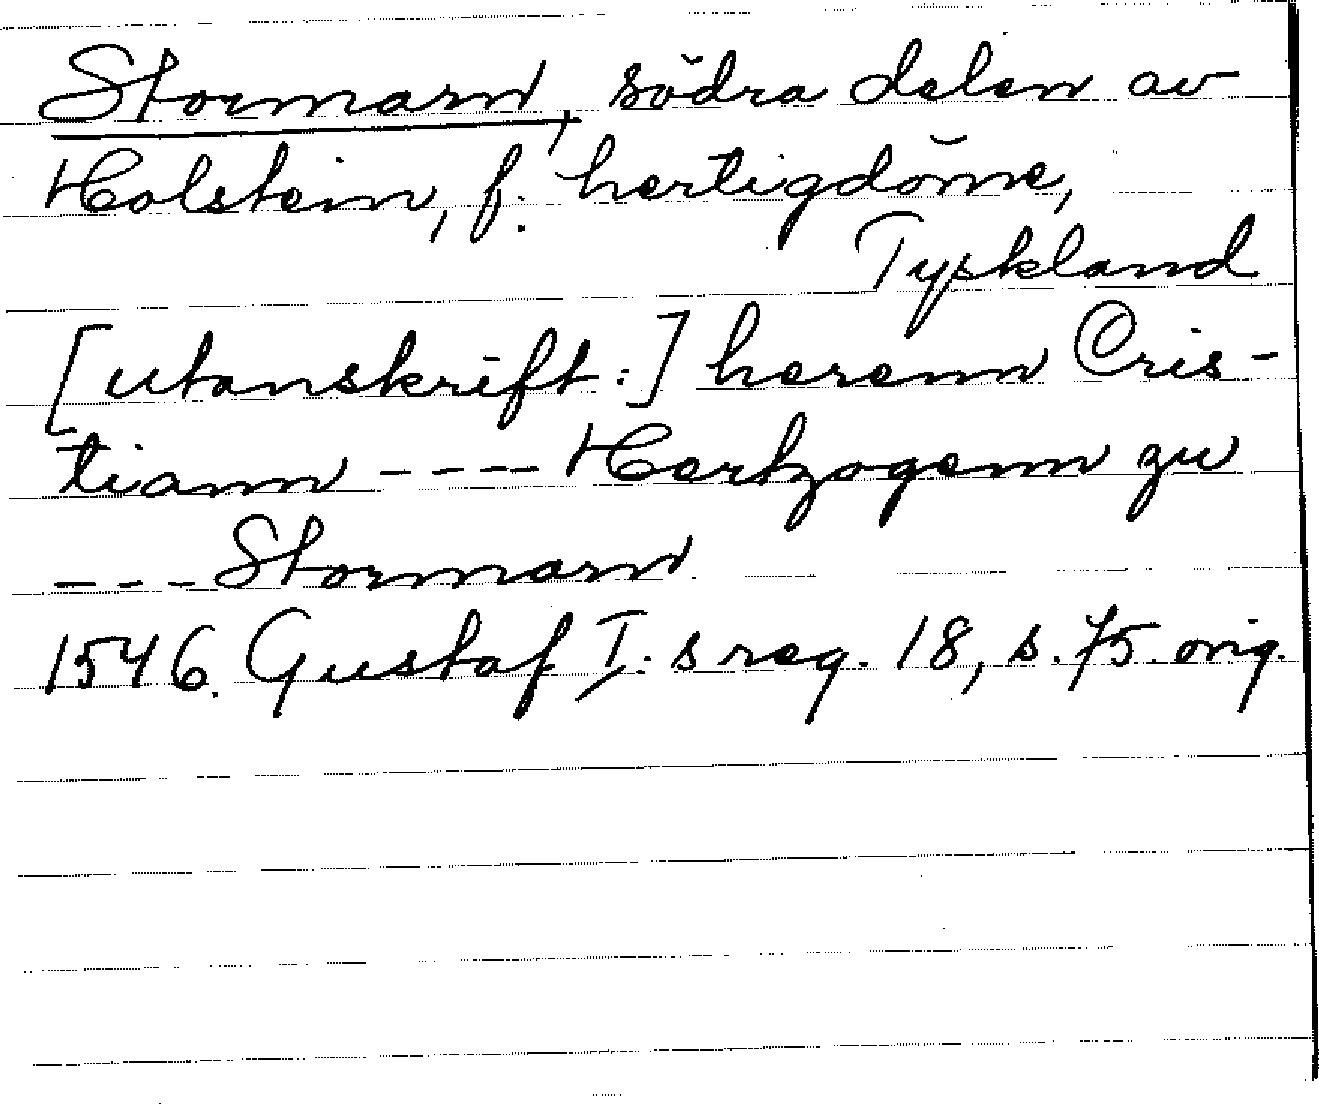 Stormarn, södra delen av
Holstein, f. hertigdöme,
Tyskland
[utanskrift:] herenn Cris-
tiann ---- Hertzogenn zu
--- Stormarn
1546. Gustaf I:s reg. 18, s. 75 orig.